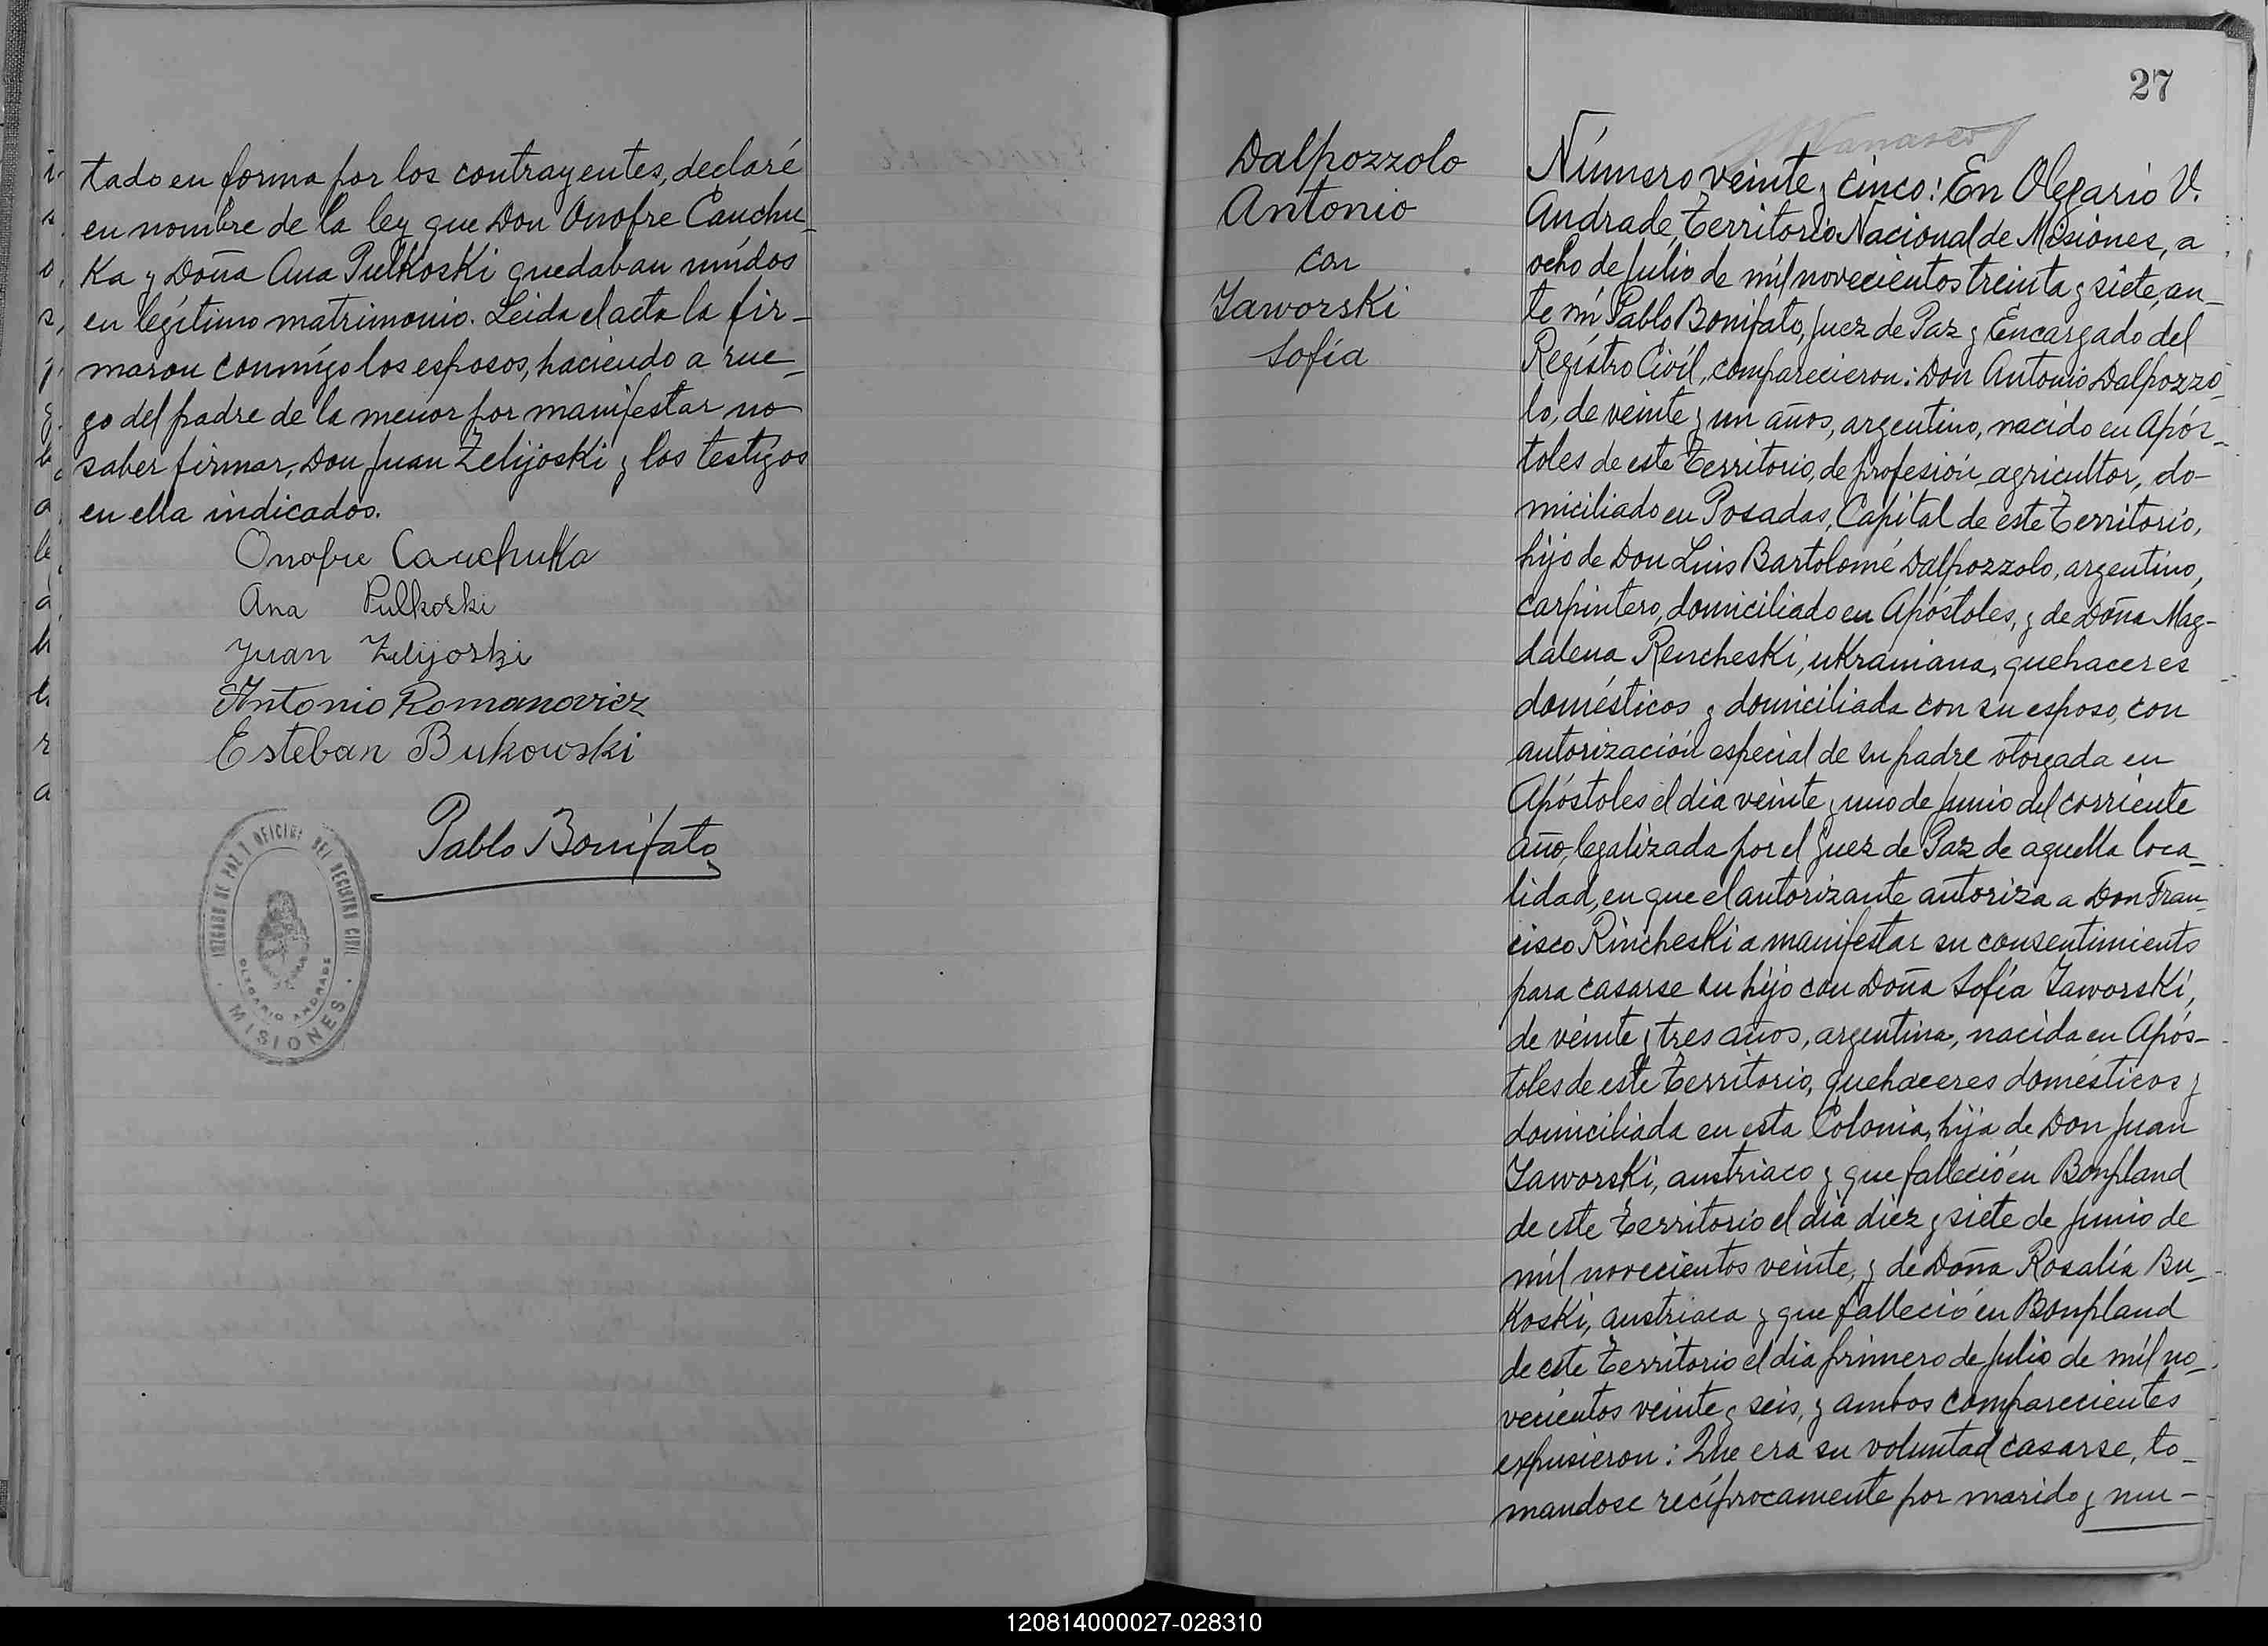 tado en forma por los contrayentes, declaré
en nombre de la ley que Don Onofre Cauchu_
Ka y Doña Ana Pulkoski quedaban unídos
en legítimo matrimonio. Leida el acta la fir_
maron conmígo los esposos, haciendo a rue_
go del padre de la menor por manifestar no
saber firmar, Don Juan Zelijoski y los testigos
en ella indicados.
Onofre Cauchuka
Ana Pulkoski
Juan Zelijoski
Antonio Romanovicz
Esteban Bukowski
Pablo Bonifato
JUZGADO DE PAZ Y OFICINA DEL REGISTRO CIVIL
OLEGARIO ANDRADE
MISIONES
27
Dalpozzolo
Antonio
con
Jaworski
Sofía
Número veinte y cinco: En Olegario V.
Andrade, Territorio Nacional de Misiones, a
ocho de Julio de mil novecientos treinta y siete, an_
te mí Pablo Bonifato, Juez de Paz y Encargado del
Regístro Civíl, comparecieron: Don Antonio Dalpozzo_
lo, de veinte y un años, argentino, nacido en Após_
toles de este Territorio, de profesión agricultor, do-
miciliado en Posadas, Capital de este Territorio,
hijo de Don Luis Bartolomé Dalpozzolo, argentino,
carpintero, domiciliado en Apóstoles, y de Doña Mag-
dalena Rencheski, ukraniana, quehaceres
domésticos y domiciliada con su esposo, con
autorización especial de su padre otorgada en
Apóstoles el día veinte y uno de Junio del corriente
año, legalizada por el Juez de Paz de aquella loca_
lidad, en que el autorizante autoriza a Don Fran_
cisco Rincheski a manifestar su consentimiento
para casarse su hijo con Doña Sofía Jaworski,
de veinte y tres años, argentina, nacida en Após-
toles de este Territorio, quehaceres domésticos y
domiciliada en esta Colonia, hija de Don Juan
Jaworski, austriaco y que falleció en Bonpland
de este Territorio el día diez y siete de Junio de
mil novecientos veinte, y de Doña Rosalía Bu_
Koski, austriaca y que falleció en Bonpland
de este Territorio el día primero de Julio de mil no_
vecientos veinte y seis, y ambos comparecientes
expusieron: Que era su voluntad casarse, to_
mandose recíprocamente por marido y mu-
120814000027-028310